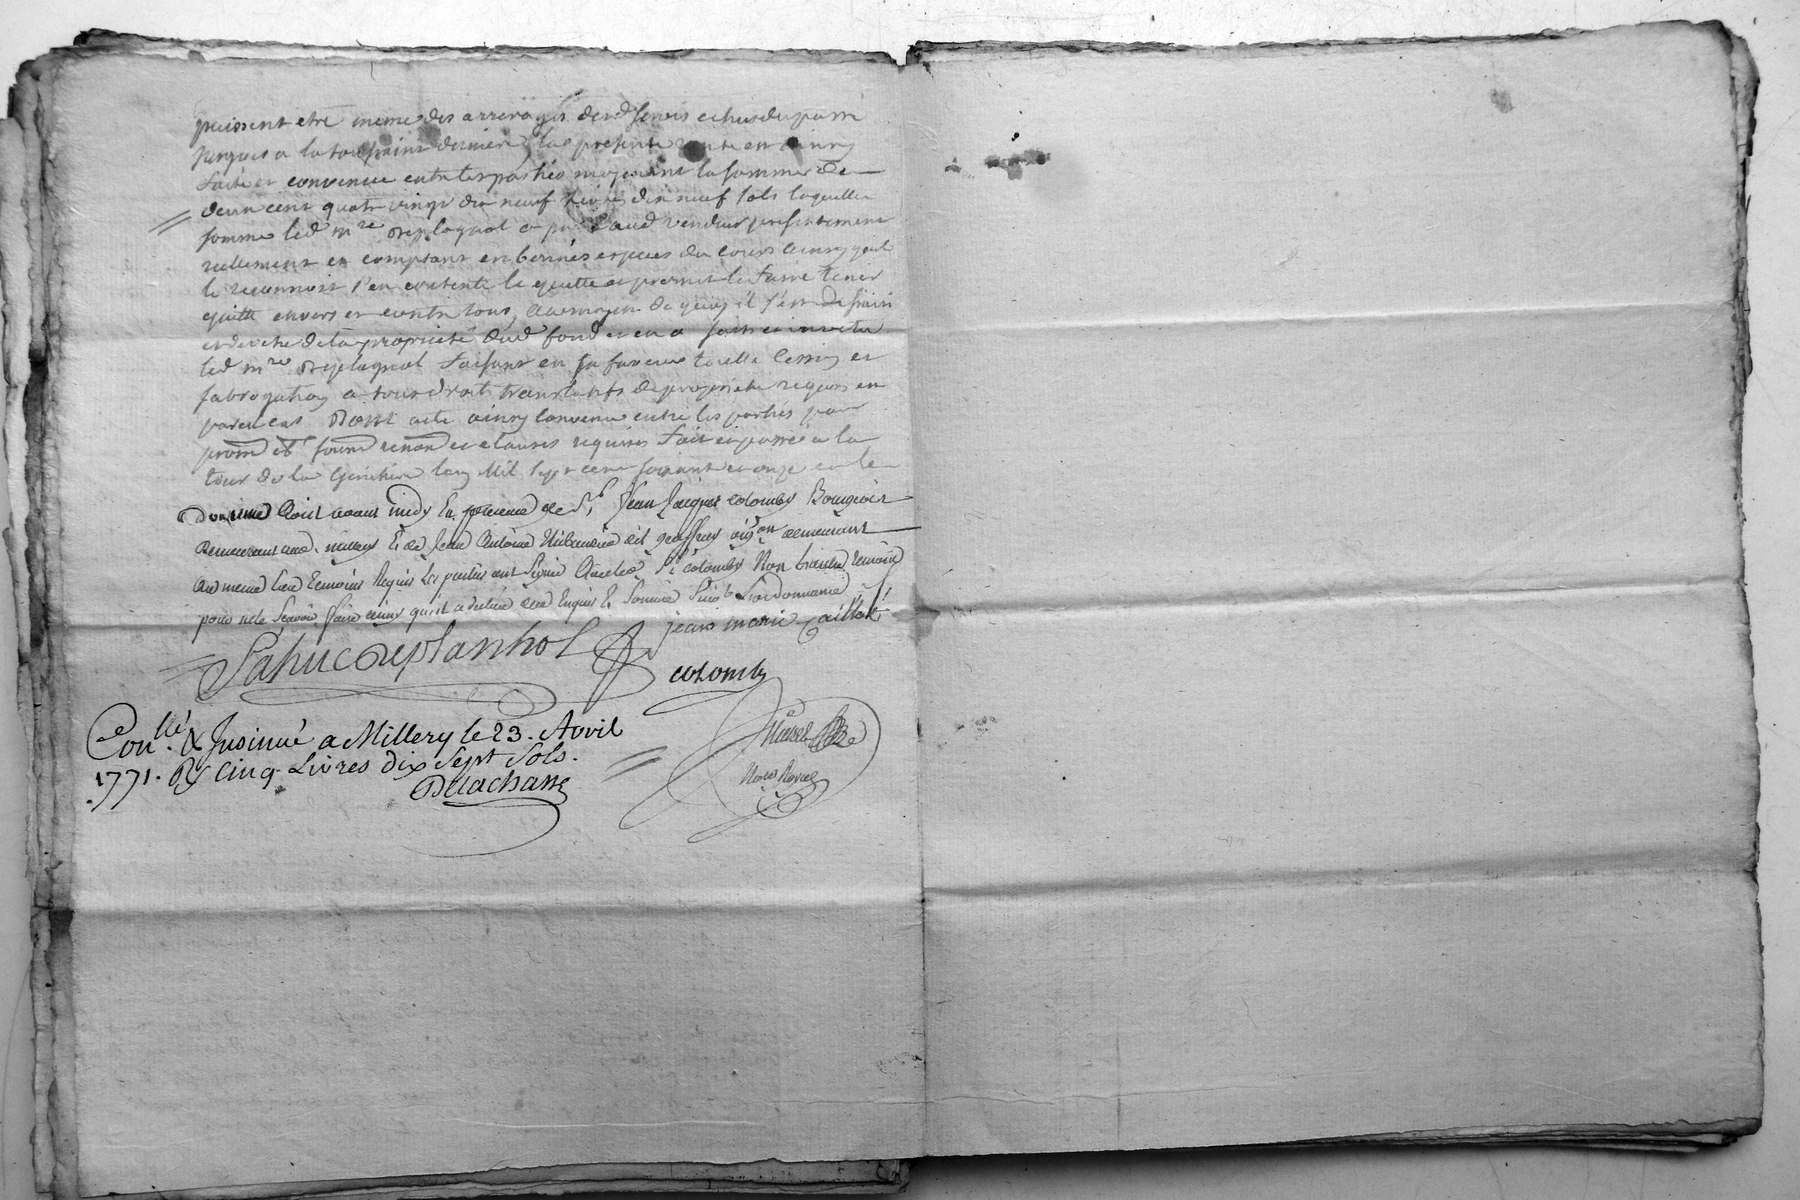 puissent etre meme des arrerages desd servis echus du passé
jusques a la toussaint derniere, la presente vente en ainsy
faite et convenue entre les parties moyenant la somme de
deux cent quatre vingt dix neuf livres dix neuf sols laquelle
somme led mre deplagnol a payé aud vendeur presentement
reellement et comptant en bonnes especes du cours ainsy quil
le reconnoit s'en contente le quitte et promet le faire tenir
quitte envers et contre tous, au moyen de quoy il s'est
de la propriété dud fond et en a
led mre deplagnol faisant en sa faveur toutte cession et
subrogation a tous droits translatifs de propriete requis en
pareil cas Dont acte ainsy convenu entre les parties par
prom obl soum renon et clauses requises fait et passé a la
tour de la lan Mil sept cent soixante et onze et le
avril avant midy En presence de Sr Jean Jacques colomby Bourgeois
Demeurant aud. millery Et de Jean Antoine dit demeurant
au meme lieu temoins Requis Les parties ont signé Avec led Sr colomby Non l'autre temoin
pour ne le sçavoir faire ainsy quil a declaré de ce Enquis Et Sommé Suivt L'ordonnance
jean marie
Sahuc deplanhol
colomby
Conllé & Insinué a Millery le 23. Avril
1771. Rs Cinq Livres dix Sept Sols.
Delachasse
Nore Royal